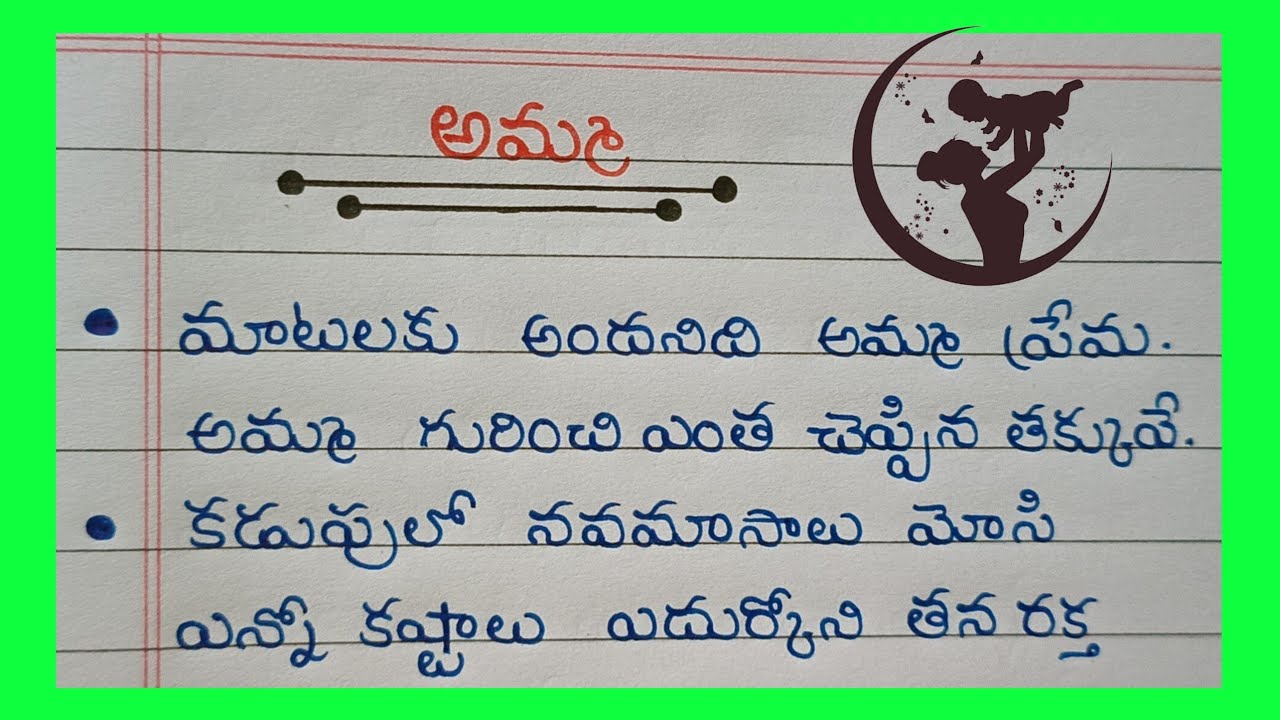 అమ్మ
• మాటులకు అందనిది అమ్మ ప్రేమ.
అమ్మ గురించి ఎంత చెప్పిన తక్కువే.
• కడుపులో నవమాసాలు మోసి
ఎన్నో కష్టాలు ఎదుర్కోని తన రక్త